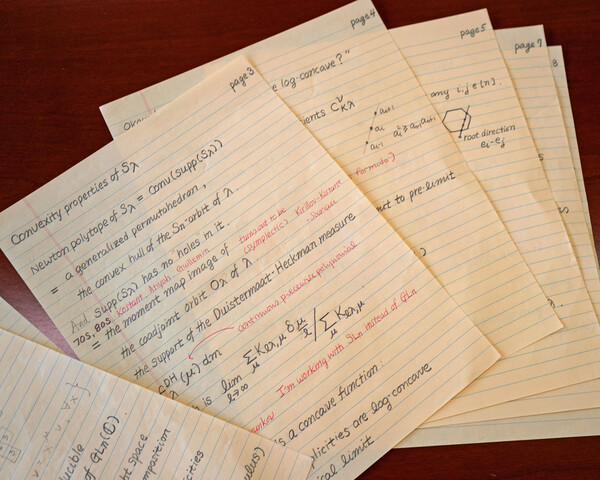 page 3
Convexity properties of Sλ
Newton polytope of Sλ = Conv(supp(Sλ))
= a generalized permutohedron,
the convex hull of the Sn-orbit of λ.
And supp(Sλ) has no holes in it.
70s, 80s Kostant, Atiyah, Guillemin
turns out to be (symplectic) Kirillov-Kostant-Souriau
= the moment map image of
the coadjoint orbit Oλ of λ.
the support of the Duistermaat-Heckman measure
continuous piecewise polynomial
DH λ (μ) dm
is lim ℓ→∞ Σμ Kℓλ,μ δ μ/ℓ / Σμ Kℓλ,μ
I'm working with SLn instead of GLn
is a concave function:
plicities are log-concave
ical limit
page 4
e log-concave?"
ients CνKλ
ai+1
ai
ai-1
ai² ≥ ai-1 ai+1
formula)
ct to pre-limit
page 5
any i,j ∈ [n].
root direction
ei-ej
page 7
8
ucible
of GLn(ℂ)
ht space
mposition
icities
ulus)